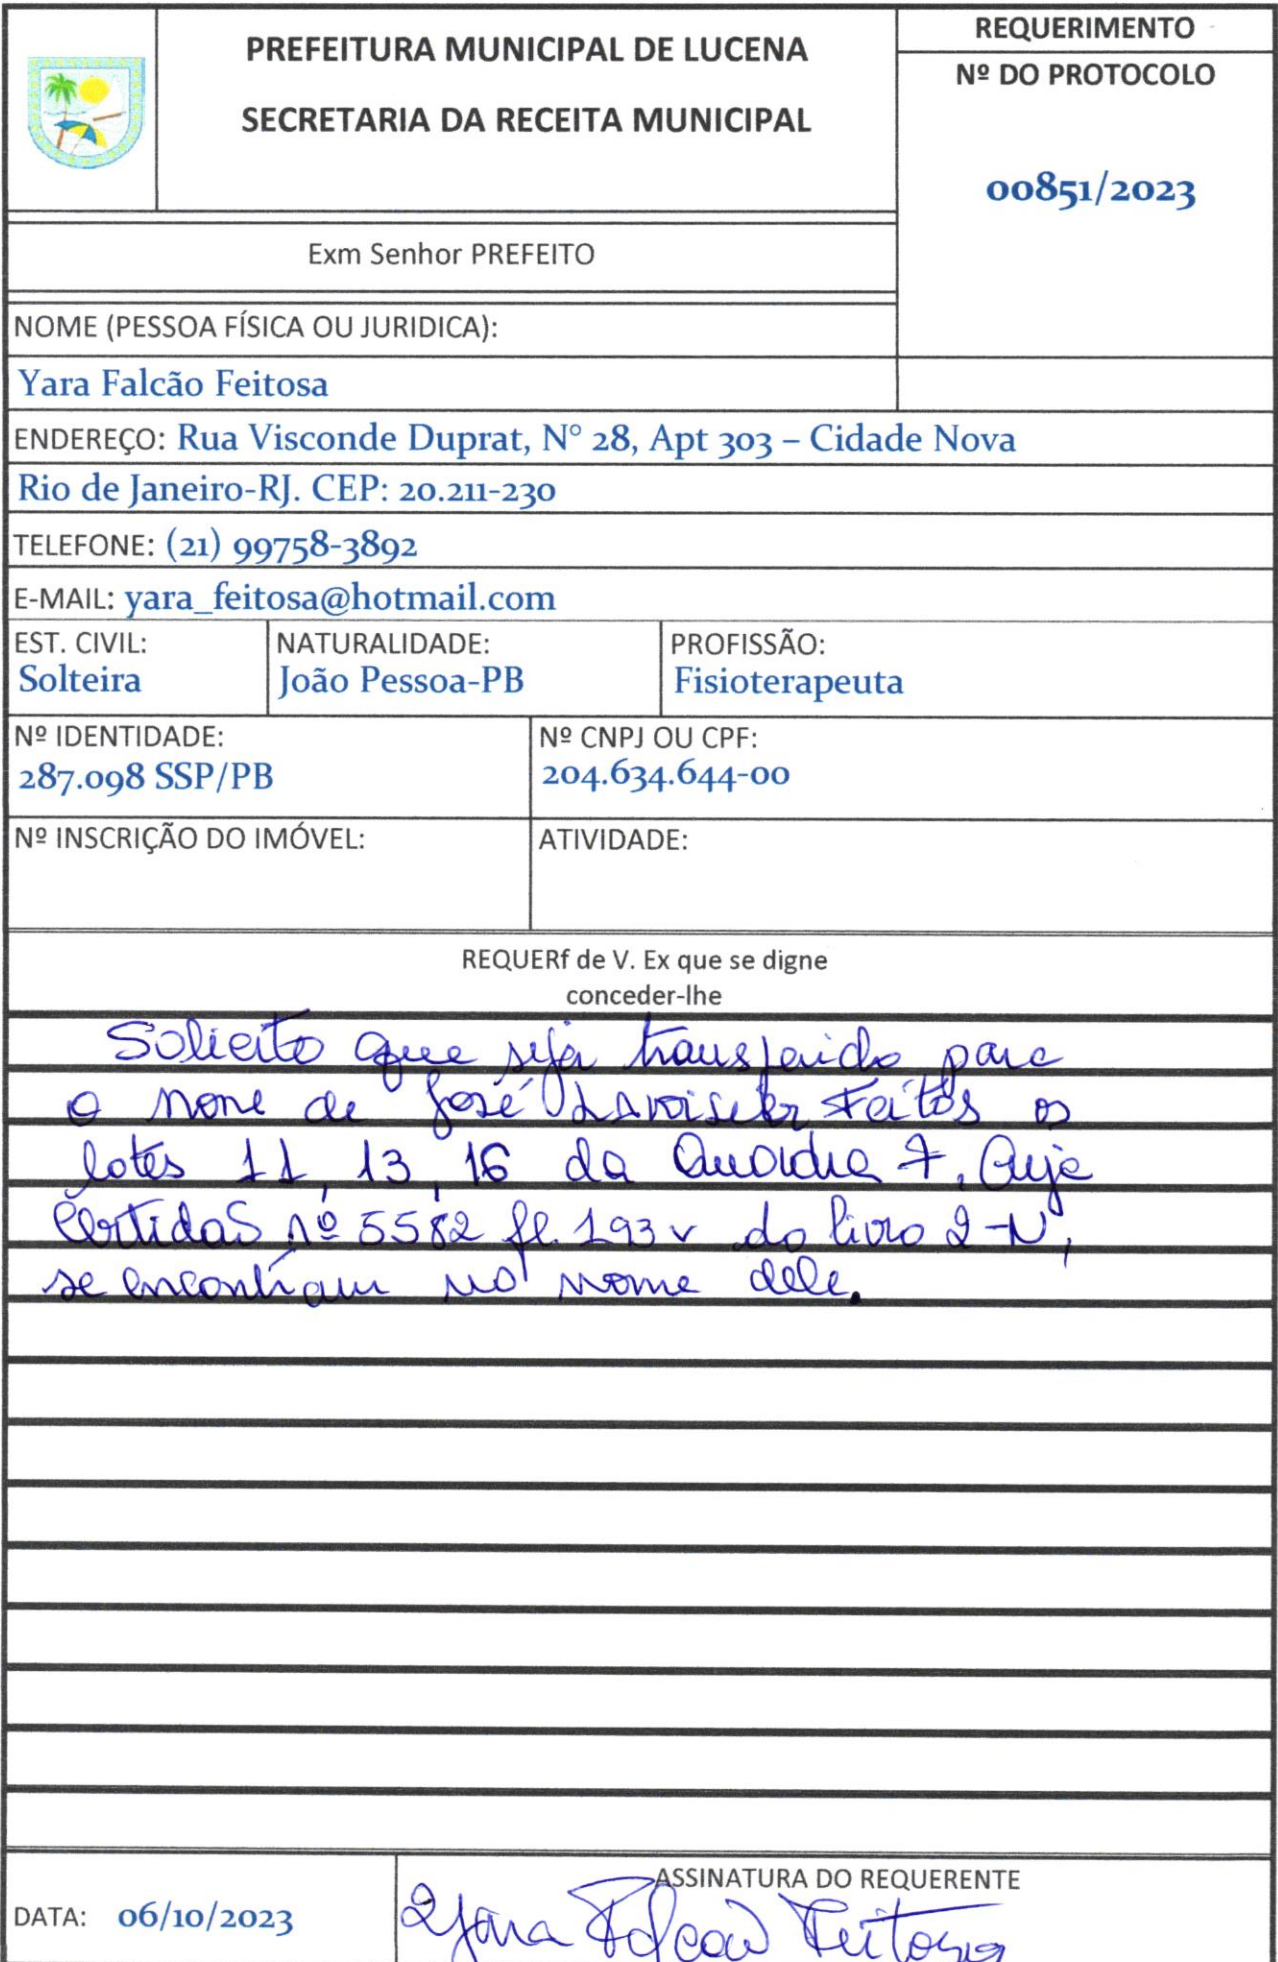 PREFEITURA MUNICIPAL DE LUCENA
SECRETARIA DA RECEITA MUNICIPAL
REQUERIMENTO
Nº DO PROTOCOLO
00851/2023
Exm Senhor PREFEITO
NOME (PESSOA FÍSICA OU JURIDICA):
Yara Falcão Feitosa
ENDEREÇO: Rua Visconde Duprat, N° 28, Apt 303 – Cidade Nova
Rio de Janeiro-RJ. CEP: 20.211-230
TELEFONE: (21) 99758-3892
E-MAIL: yara_feitosa@hotmail.com
EST. CIVIL:
Solteira
NATURALIDADE:
João Pessoa-PB
PROFISSÃO:
Fisioterapeuta
Nº IDENTIDADE:
287.098 SSP/PB
Nº CNPJ OU CPF:
204.634.644-00
Nº INSCRIÇÃO DO IMÓVEL:
ATIVIDADE:
REQUERf de V. Ex que se digne
conceder-lhe
Solicito que seja transferido para
o nome de José Feitos os
lotes 11, 13, 16 da Quadra 7, cuja
Certidão nº 5582 fl. 193 v do livro 2-N,
se encontram no nome dele.
DATA: 06/10/2023
ASSINATURA DO REQUERENTE
Yara Falcão Feitosa